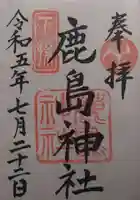 奉拝
鹿島神社
令和五年七月二十二日